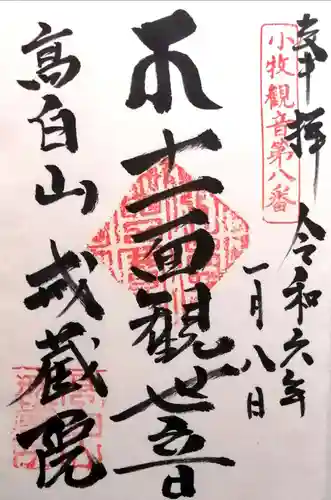 奉拝
令和六年
一月八日
小牧觀音第八番
十一面觀世音
高白山
戒蔵院